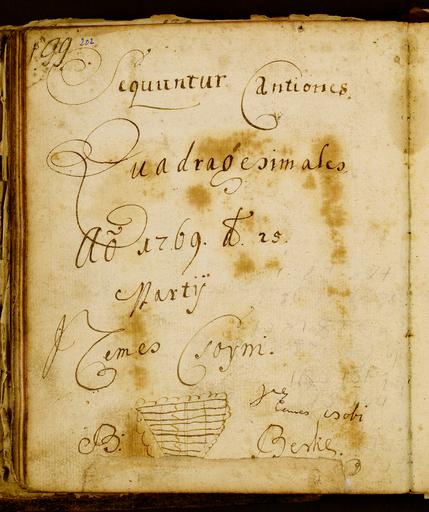 199 202
Sequuntur Cantiones
Quadragesimales
Aõ 1769. D. 25.
Martij
Nemes Csoÿni.
Nemes Csobi
B: Berke.